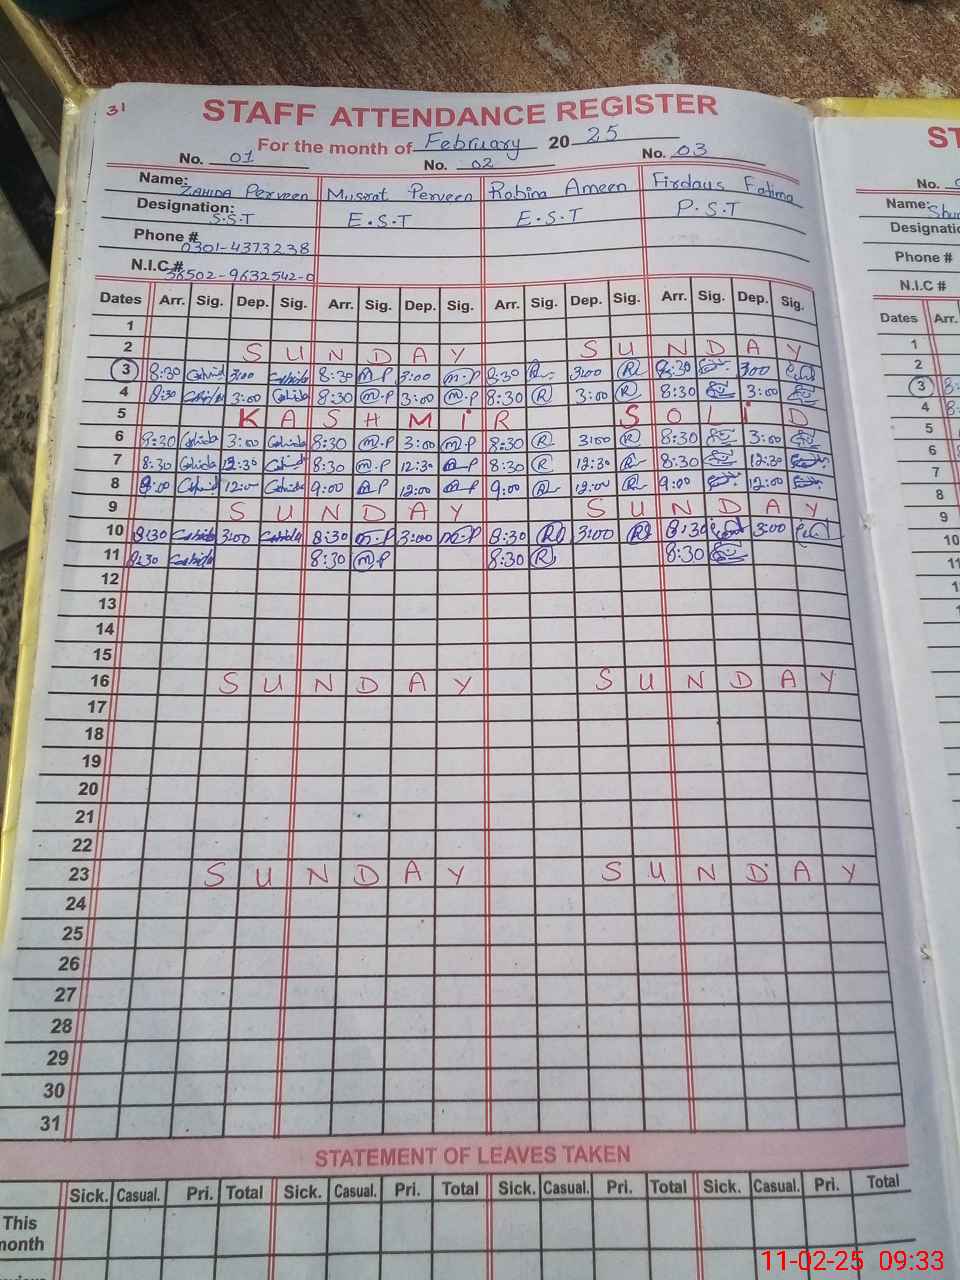 31
STAFF ATTENDANCE REGISTER
For the month of February 2025
No. 01 No. 02 No. 03
Name: Zahida Perveen Musrat Perveen Robina Ameen Firdaus Fatima
Designation: S.S.T E.S.T E.S.T P.S.T
Phone # 0301-4373238
N.I.C.# 36502-9632542-0
Dates Arr. Sig. Dep. Sig. Arr. Sig. Dep. Sig. Arr. Sig. Dep. Sig. Arr. Sig. Dep. Sig.
1
2 SUNDAY SUNDAY
3 8:30 3:00 8:30 M.P 3:00 M.P 8:30 R 3:00 R 8:30 3:00
4 8:30 3:00 8:30 M.P 3:00 M.P 8:30 R 3:00 R 8:30 3:00
5 KASHMiR SOLiD
6 8:30 3:00 8:30 M.P 3:00 M.P 8:30 R 3:00 R 8:30 3:00
7 8:30 12:30 8:30 M.P 12:30 M.P 8:30 R 12:30 R 8:30 12:30
8 9:00 12:00 9:00 M.P 12:00 M.P 9:00 R 12:00 R 9:00 12:00
9 SUNDAY SUNDAY
10 8:30 3:00 8:30 M.P 3:00 M.P 8:30 R 3:00 R 8:30 3:00
11 8:30 8:30 M.P 8:30 R 8:30
12
13
14
15
16 SUNDAY SUNDAY
17
18
19
20
21
22
23 SUNDAY SUNDAY
24
25
26
27
28
29
30
31
STATEMENT OF LEAVES TAKEN
Sick. Casual. Pri. Total Sick. Casual. Pri. Total Sick. Casual. Pri. Total Sick. Casual. Pri. Total
This
month
ST
No.
Name:
Designatio
Phone #
N.I.C #
Dates Arr.
1
2
3 8:
4 8:
5
6
7
8
9
10
11
11-02-25 09:33